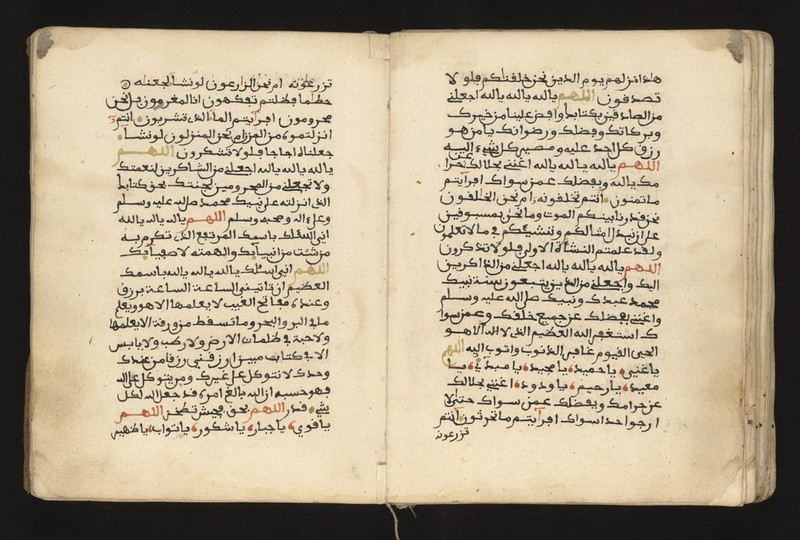 هذا نزلهم يوم الدين نحن خلقناكم فلولا
تصدقون اللهم يالله يالله يالله اجعلني
من الصادقين بكتابك وافض علينا من خيرك
وبركاتك وفضلك ورضوانك يا من هو
رزق كل احد عليه ومصير كل شيء اليه
اللهم يالله يالله يالله اغنني بحلالك عن حرا
مك يالله وبفضلك عمن سواك افرايتم
ما تمنون انتم تخلقونه ام نحن الخالقون
نحن قدرنا بينكم الموت وما نحن بمسبوقين
على ان نبدل امثالكم وننشئكم في ما لا تعلمون
ولقد علمتم النشأة الاولى فلولا تذكرون
اللهم يالله يالله يالله اجعلني من الذاكرين
اليك واجعلني من الذين يتبعون سنة نبيك
محمد عبدك ونبيك صلى الله عليه وسلم
واغنني بفضلك عن جميع خلقك وعمن سوا
ك استغفر الله العظيم الذي لا اله الا هو
الحي القيوم غافر الذنوب واتوب اليه اللهم
يا غني يا حميد يا مجيد يا مبدئ يا
معيد يا رحيم يا ودود اغنني بحلالك
عن حرامك وبفضلك عمن سواك حتى لا
ارجوا احدا سواك افرايتم ما تحرثون انتم
تزرعونه
تزرعونه ام نحن الزارعون لو نشا لجعلناه
حطاما فظلتم تفكهون انا لمغرمون بل نحن
محرومون افرايتم الماء الذي تشربون انتم
انزلتموه من المزن ام نحن المنزلون لو نشا
جعلناه اجاجا فلولا تشكرون اللهم
يالله يالله يالله اجعلني من الشاكرين لنعمتك
ولا تجعلني من المحرومين لجنتك بحق كتابك
الذي انزلته على نبيك محمد صلى الله عليه وسلم
وعلى اله وصحبه وسلم اللهم يالله يالله يالله
اني اسئلك باسمك المرتفع الذي تكرم به
من شئت من انبيائك والهمته لاصفيائك
اللهم اني اسئلك يالله يالله يالله باسمك
العظيم ان تاتيني الساعة الساعة برزق
وعنده مفاتح الغيب لا يعلمها الا هو ويعلم
ما في البر والبحر وما تسقط من ورقة الا يعلمها
ولا حبة في ظلمات الارض ولا رطب ولا يابس
الا في كتاب مبين ارزقني رزقا من عندك
وحدك لا نتوكل على غيرك ومن يتوكل على الله
فهو حسبه ان الله بالغ امره قد جعل الله لكل
شيء قدرا اللهم بحق اللهم
يا قوي يا جبار يا شكور يا تواب يا ظهير